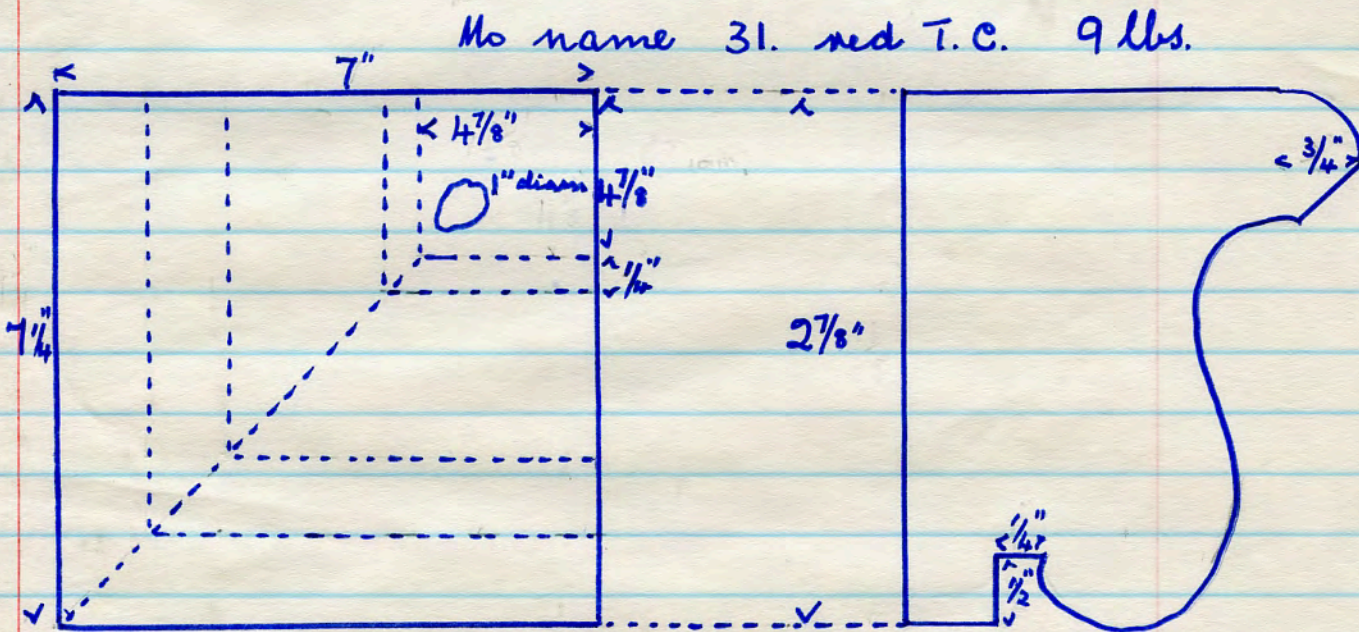 No name 31. red T.C. 9 lbs.
7"
4 7/8"
3/4"
1" diam 4 7/8"
1/4"
7 1/4"
2 7/8"
1/4"
1/2"